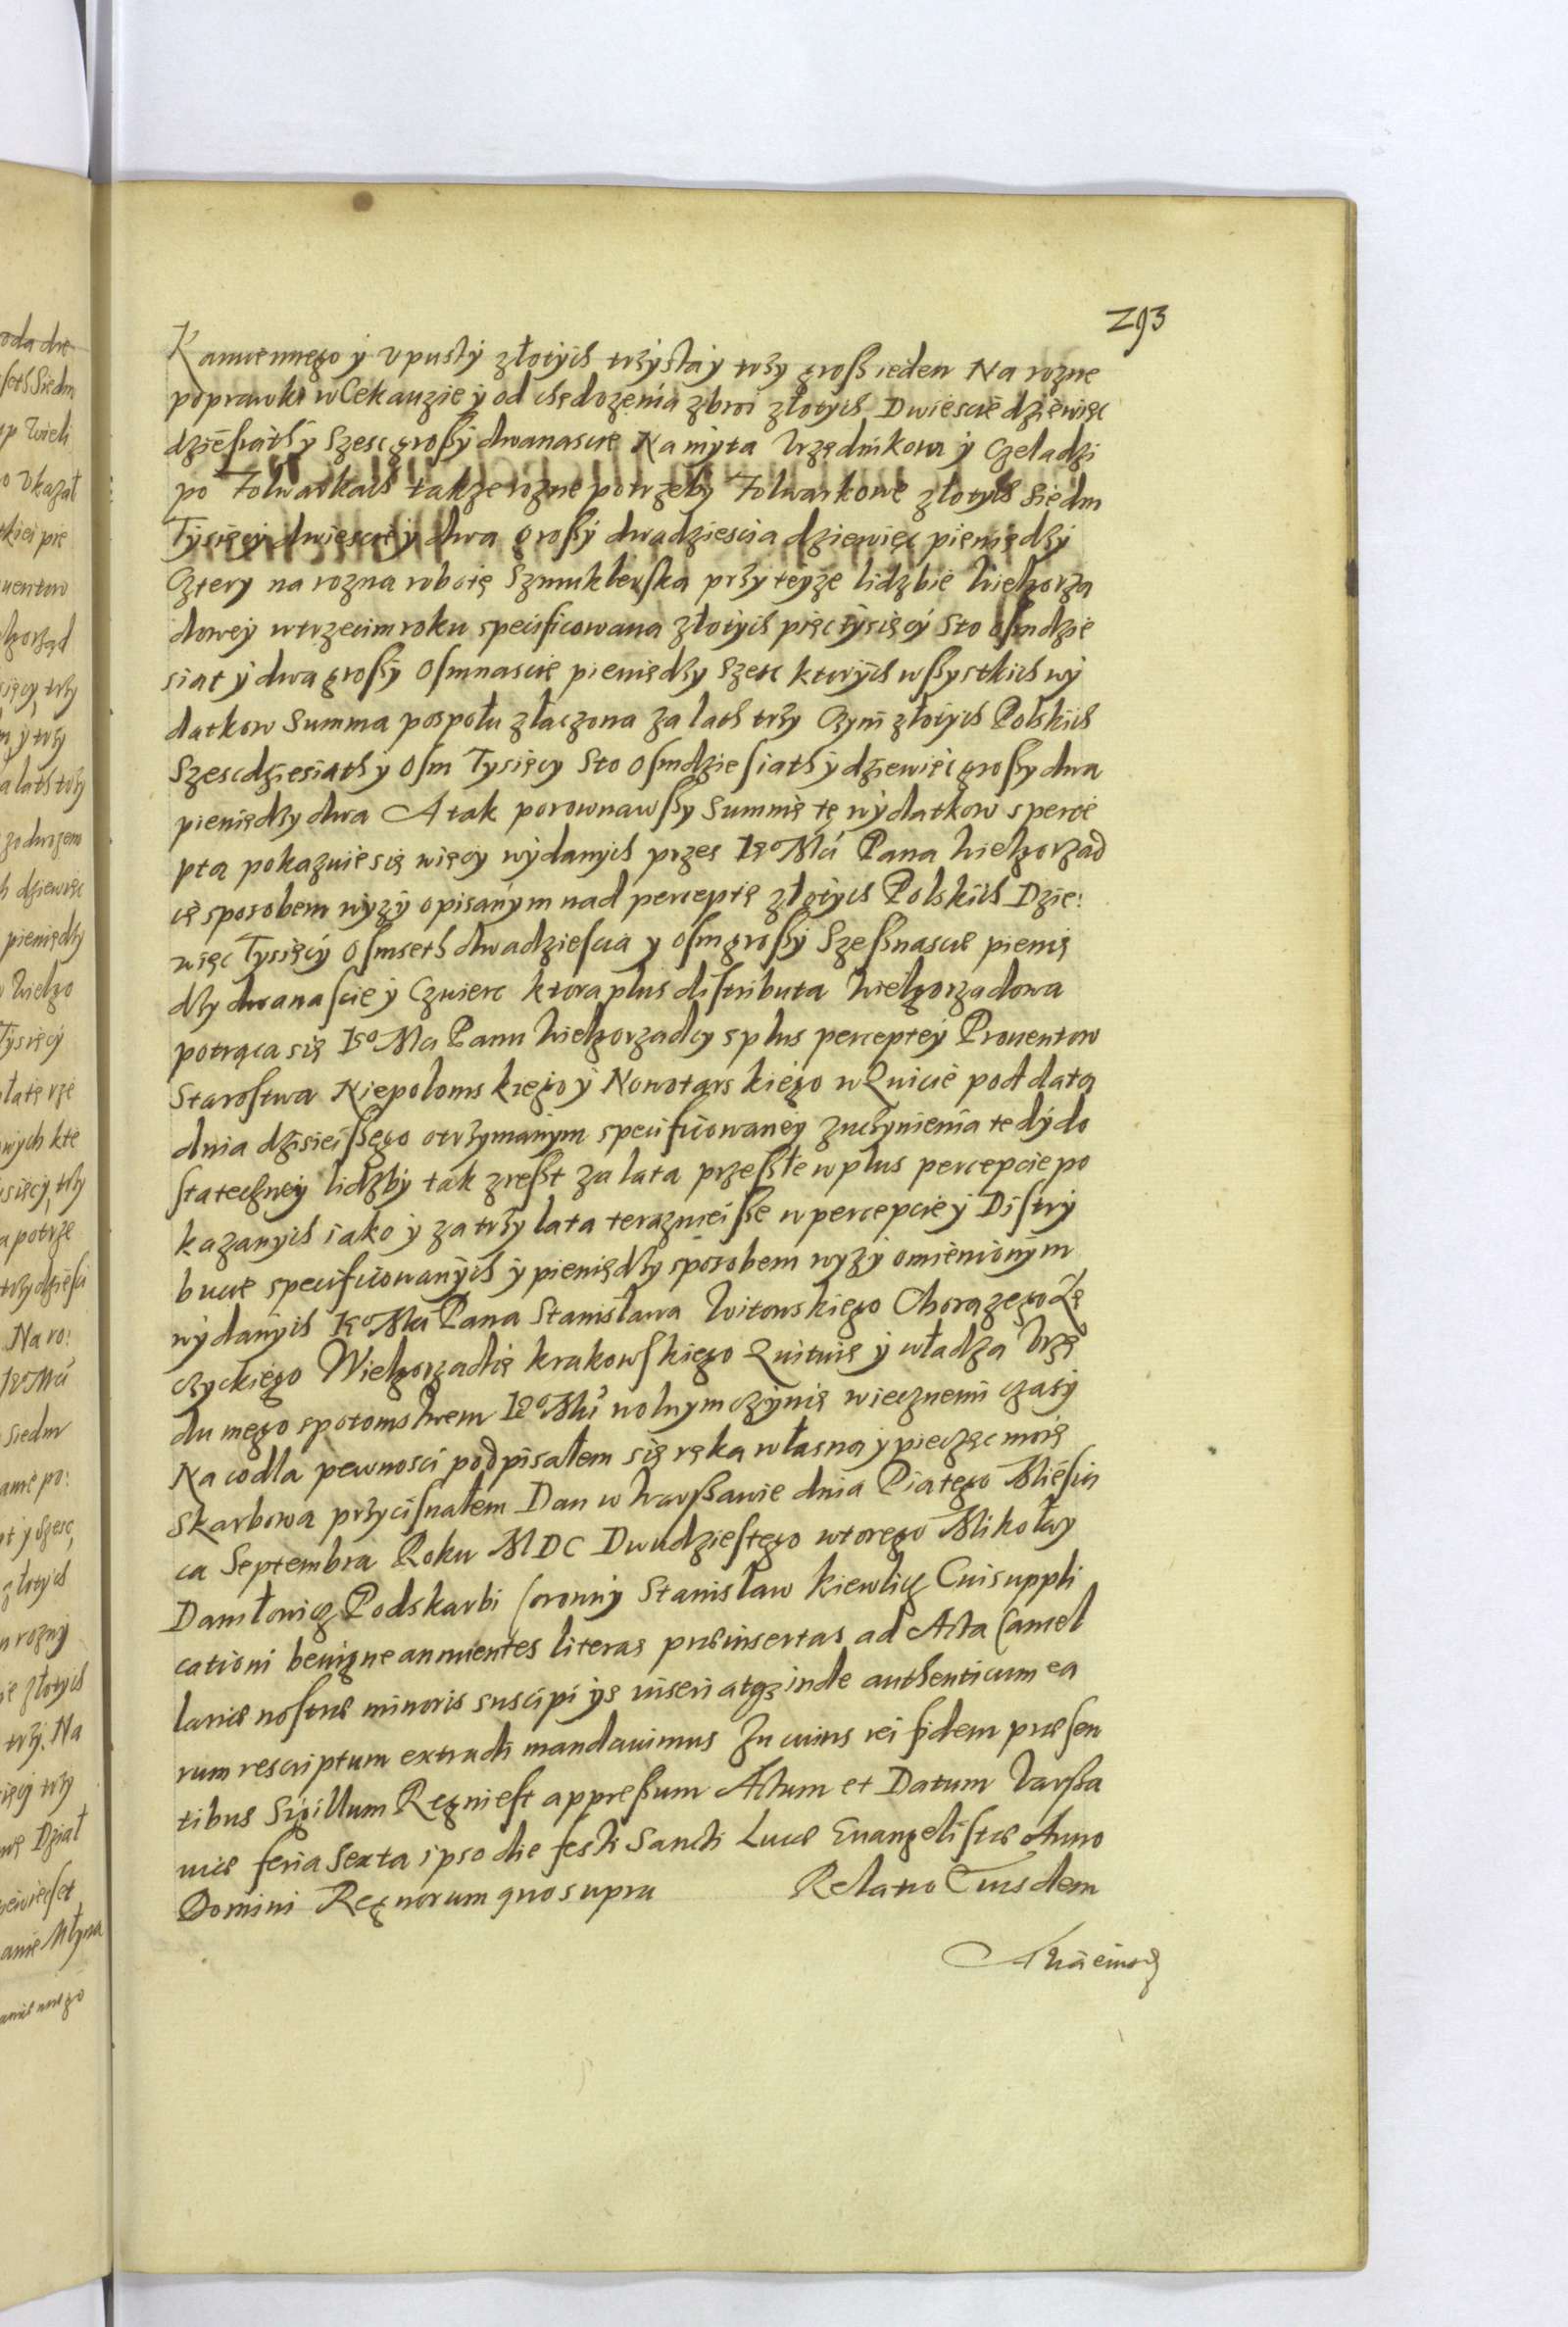 293
Kamiennego ÿ vpustÿ złotÿch trzÿsta ÿ trzy grosz ieden Na rozne
poprawki w Cekauzie ÿ od chędozenia zbroi złotÿch Dwiescie dziewięc
dziesiąth ÿ szesc groszÿ dwanascie Na mÿta Vrzędnikom ÿ Czeladzi
po Folwarkach takze rozne potrzebÿ Folwarkowe złotÿch Siedm
Tÿsięcÿ dwiescie ÿ dwa groszÿ dwadziescia dziewięc pieniędzÿ
Cztery na rozna robotę Szmuklerska przÿ teyze lidzbie Wielgorza
dowey w trzecim roku specificowana złotÿch pięc tÿsięcÿ Sto osmdzie
siat ÿ dwa groszÿ Osmnascie pieniędzÿ szesc ktorÿch wszystkich wÿ
datkow Summa pospołu złaczona za lath trzy Czÿni złotÿch Polskich
Szescdziesiath ÿ Osm Tysięcy Sto Osmdziesiath ÿ dziewięc groszy dwa
pieniędzy dwa A tak porownawszy Summę tę wÿdatkow s perce
ptą pokazuie się więcÿ wÿdanÿch przes Ie° Mći Pana Wielgorzad
cę sposobem wÿzÿ opisanÿm nad perceptę złotÿch Polskich Dzie:
więc Tysięcÿ Osmseth dwadziescia y osm groszÿ Szesznascie pienię
dzy dwanascie ÿ Czwierc ktora plus distributa Wielgorzadowa
potrąca się Ie° Mci Panu Wielgorzadcy s plus perceptey Prouentow
Starostwa Niepolomskiego ÿ Nowotarskiego w Quicie pod data
dnia dzisieiszego otrzymanym specificowaney z uczynienia tedÿ do
statecznej lidzbÿ tak zreszt za lata przeszłe w plus percepcie po
kazanÿch iako ÿ za trzÿ lata teraznieisze w percepcie ÿ Distrÿ
bucie specificowanÿch ÿ pieniędzÿ sposobem wyzÿ omienionÿm
wÿdanÿch Ie° Mći Pana Stanisława Witowskiego Chorązego Łę
czyckiego Wielgorzadcę krakowskiego Quituię ÿ władza Vrzę
du mego s potomstwem Ie° Mći wolnym czÿnię wiecznemi czasÿ
Na co dla pewnosci podpisałem się ręka własną ÿ pieczęc moię
skarbowa przÿcisnałem Dan w Warszawie dnia Piatego Miesią
ca Septembra Roku MDC Dwudziestego wtorego Mikołay
Daniłowicz Podskarbi Coronnÿ Stanisław Kiewlicz Cui suppli
cationi benigne annuentes literas præinsertas ad Acta Cancel
lariæ nostræ minoris suscipi ÿs inseri atq3 inde authenticum ea
rum rescriptum extradi mandauimus In cuius rei fidem præsen
tibus Sigillum Regni est appressum Actum et Datum Varsa
uiæ feria Sexta ipso die festi Sancti Lucæ Euangelistæ Anno
Domini Regnorum quo supra Relatio Eiusdem